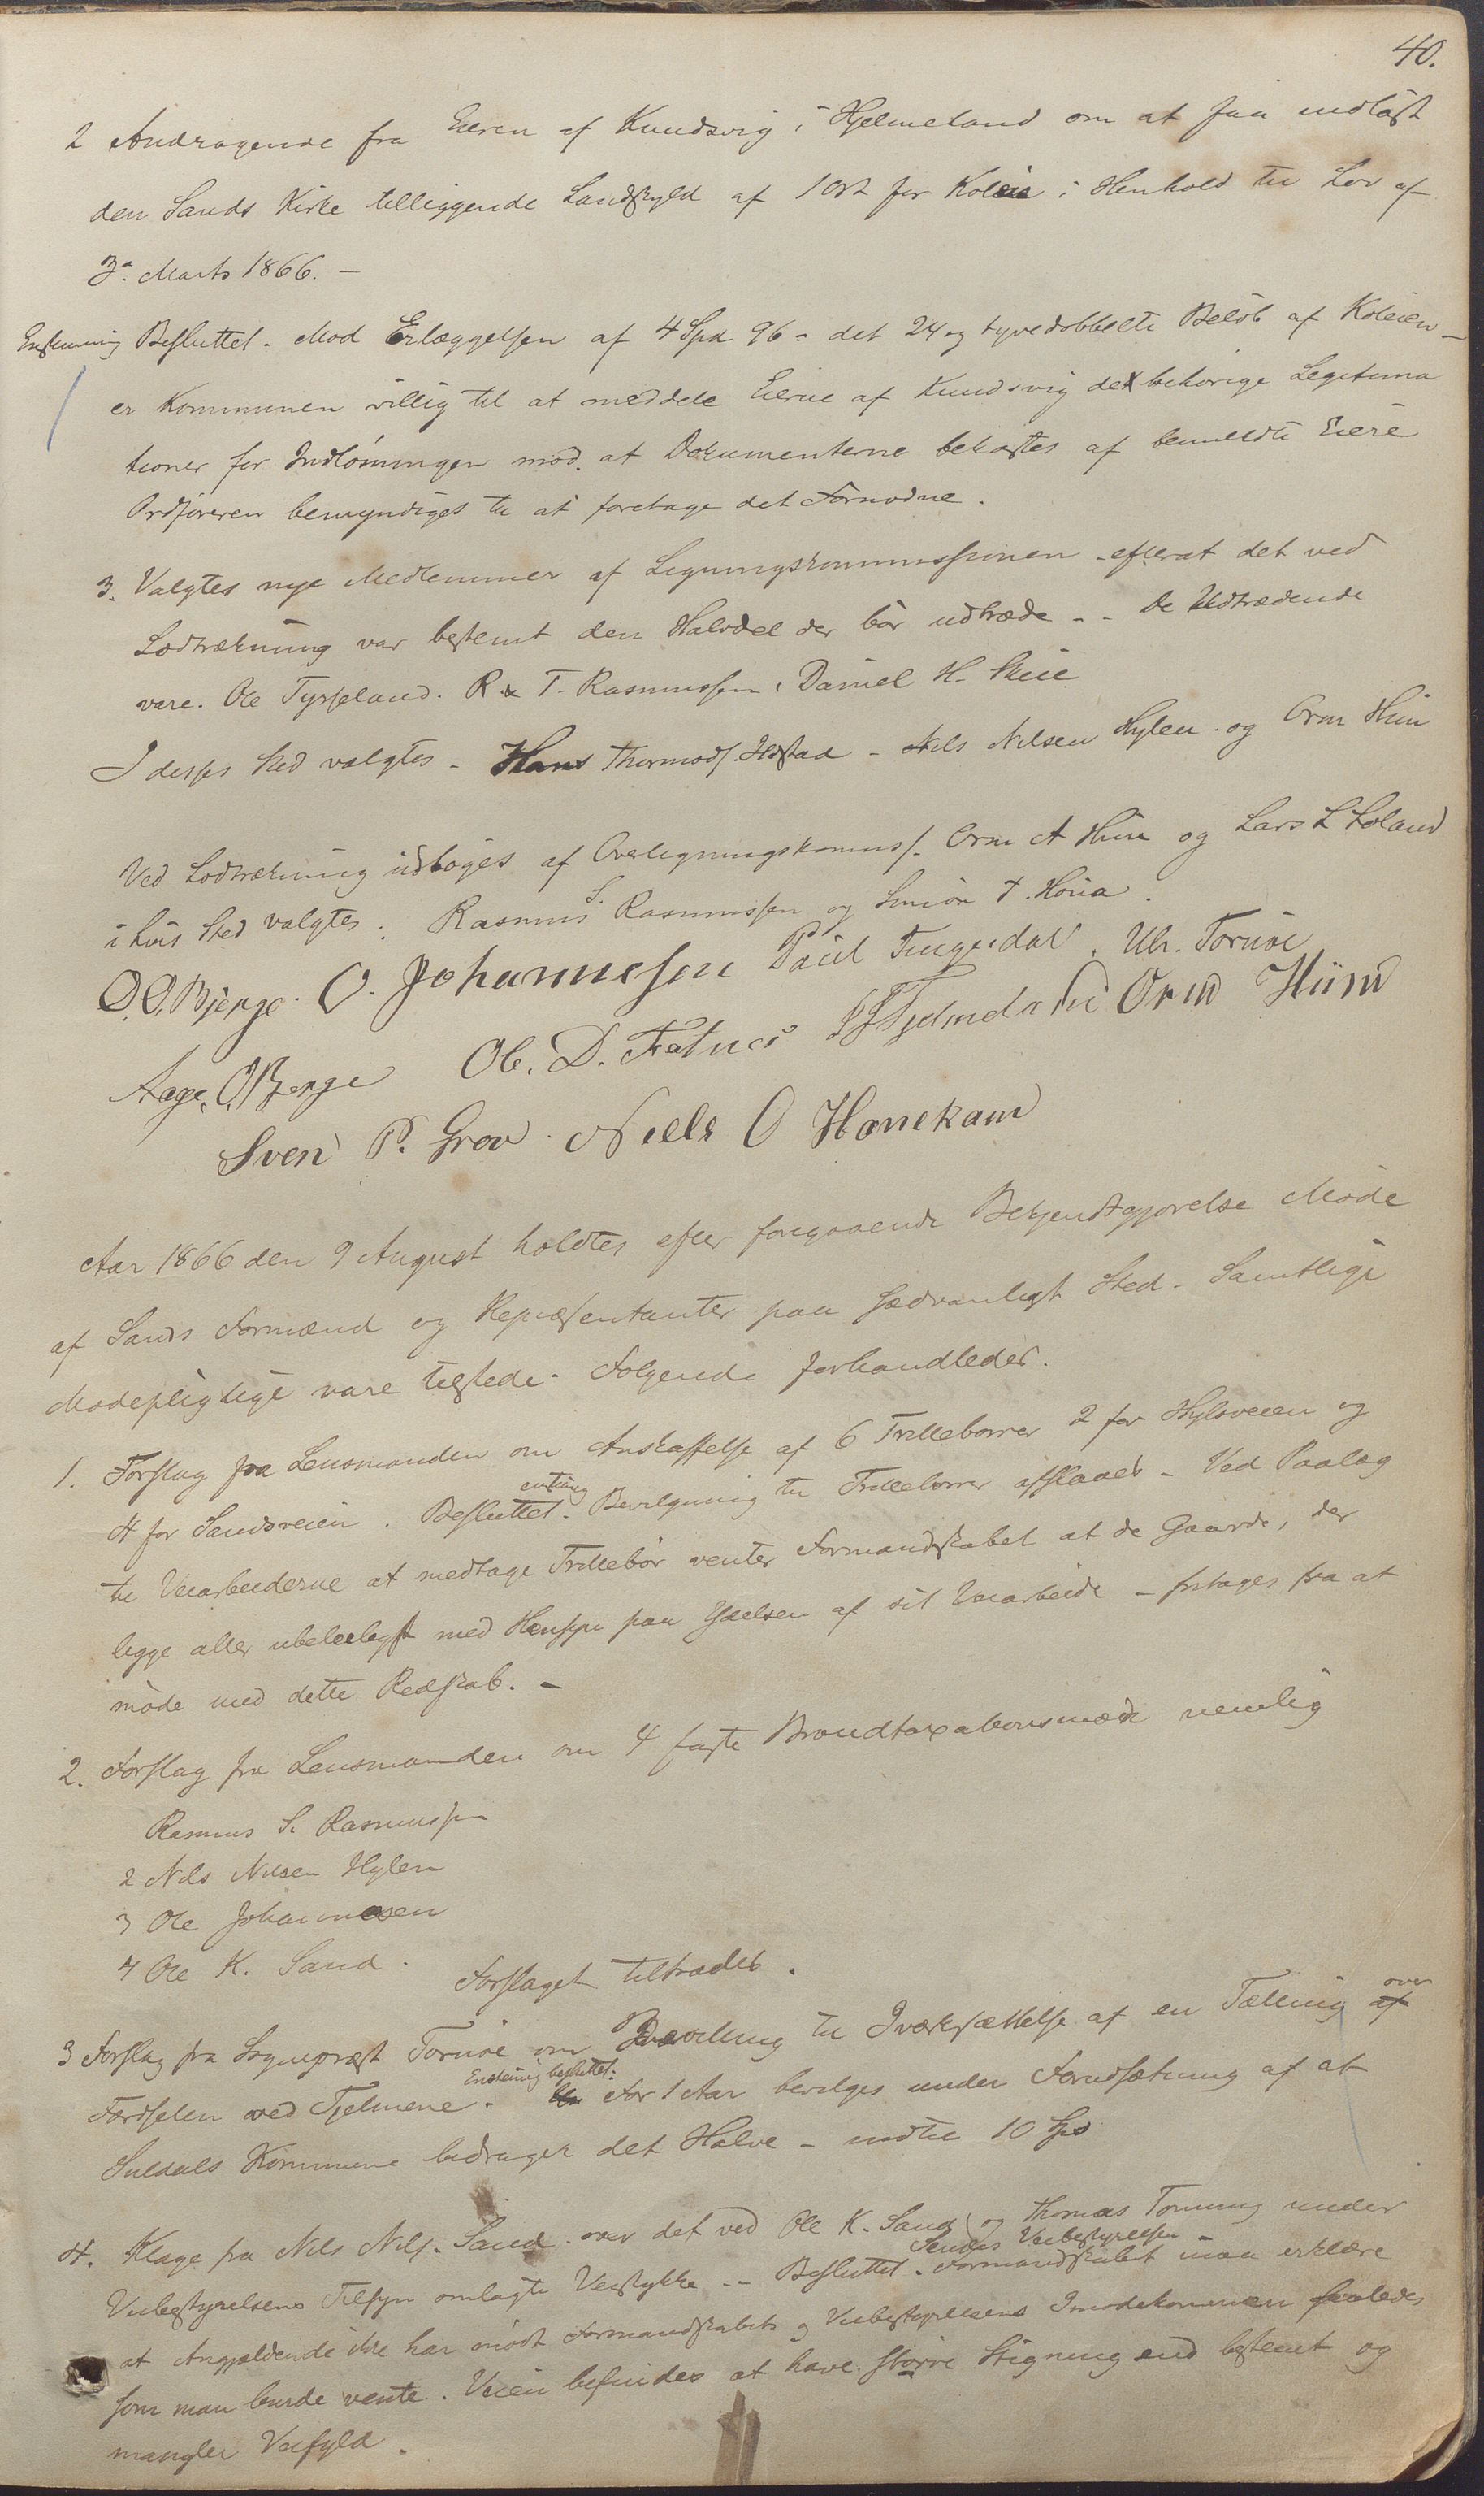 40.
2 Andragende fra Eieren af Knudsvig i Hjelmeland om at faa indløst
den Sands Kirke tilliggende Landskyld af 1 Ort for Koleie i Henhold til Lov af
3. Marts 1866. –
Enstemmig Besluttet. Mod Erlæggelsen af 4 Spd 96 – det 24 og tyvedobbelte Beløb af Koleien –
er Kommunen villig til at meddele Eierne af Knudsvig de behørige Legitima
tioner for Indløsningen mod at Dokumenterne bekostes af bemeldte Eiere
Ordføreren bemyndiges til at foretage det Fornødne.
3. Valgtes nye Medlemmer af Ligningskommissionen – efterat det ved
Lodtrækning var bestemt den Halvdel der bør udtræde – De Udtrædende
vare. Ole Tysseland. R. T. Rasmussen, Daniel H. Skeie
I deres Sted valgtes – Hans Thormods. – Nils Nilsen Hylen. og Orm Hiim
Ved Lodtrækning udtoges af Overligningskommiss. Orm A Hiim og Lars L Loland
i hvis Sted valgtes. Rasmus S. Rasmussen og Simon T. Honia.
O. O. Bjerge. O. Johannesen Paul Tengesdal. Ulr. Tornøe
Aage. O. Bjerge Ole. D. Fatnes Orm Hiim
Sven P. Grov. Niels O Hanekam
Aar 1866 den 9 August holdtes efter foregaaende Bekjendtgjørelse Møde
af Sands Formænd og Repræsentanter paa sædvanligt Sted. Samtlige
Mødepligtige vare tilstede. Følgende forhandledes.
1. Forslag fra Lensmanden om Anskaffelse af 6 Trillebørrer 2 for Hylsveien og
4 for Sandsveien. Besluttet. enstemmig Bevilgning til Trillebørrer afslaaes – Ved Paalæg
til Veiarbeiderne at medtage Trillebør venter Formandskabet at de Gaarde, der
ligge aller ubeleiligst med Hensyn paa Ydelsen af sit Veiarbeide – fritages fra at
møde med dette Redskab. –
2. Forslag fra Lensmanden om 4 faste Brandtaxationsmænd nemlig
Rasmus S. Rasmussen
2 Nils Nilsen Hylen
3 Ole Johannesen
4 Ole K. Sand.
Forslaget tiltrædes.
3 Forslag fra Sogneprest Tornøe om Bevilling til Iværksættelse af en Tælling af over
Færdselen ved Tjelmene. Enstemmig besluttet: For 1 Aar bevilges under Forudsætning af at
Suldals Kommune bidrager det Halve – indtil 10 Spd
4. Klage fra Nils Nils. Sand over det ved Ole K. Sand og Thomas Tønning under
Veibestyrelsens Tilsyn omlagte Veistykke – Besluttet. Sendes Veibestyrelsen – Formandskabet maa erklære
at Angjældende ikke har mødt Formandskabets og Veibestyrelsens Imødekommen saaledes
som man burde vente. Veien befindes at have større Stigning end bestemt og
mangler Veifyld.